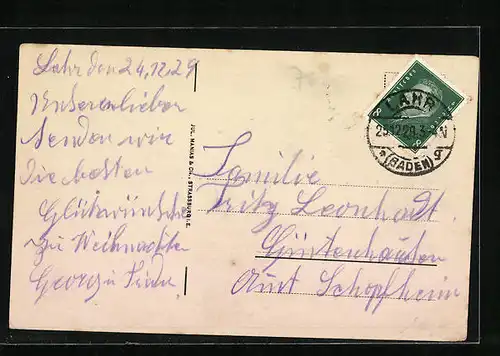 Lahr den 24.12.29
Unseren lieben
senden wir
die besten
Glückwünsche
zu Weihnachten
Georg u
JUL. MANIAS & CIE., STRASSBURG I. E.
LAHR
(BADEN)
Familie
Fritz Leonhardt
Amt Schopfheim